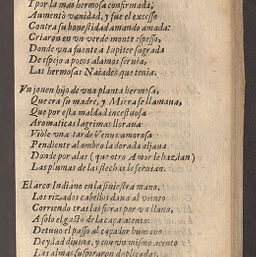 I por la mas hermosa confirmada,
Aumentò vanidad, y fue el excesso
Contra su honestidad amando amada:
Criaron en un verde monte espesso,
Donde una fuente a Iupiter sagrada
De espejo a pocos alamos seruia,
Las hermosas Naiades que tenia.
Vn jouen hijo de vna planta hermosa,
Que era su madre, y Mirra se llamaua,
Que por esta maldad incestuosa
Aromaticas lagrimas lloraua:
Viòle vna tarde Venus amorosa
Pendiente al ombro la dorada aljaua
Donde por alas (que otro Amor le hazian)
Las plumas de las flechas le seruian.
El arco Indiano en la siniestra mano,
Los rizados cabellos daua al viento
Corriendo tras las fieras por vn llano,
A solo el gusto de la caça atento:
Detuuo el passo al caçador humano
Deydad diuina, y con vn mismo acento
Las almas suspiraron duplicadas,